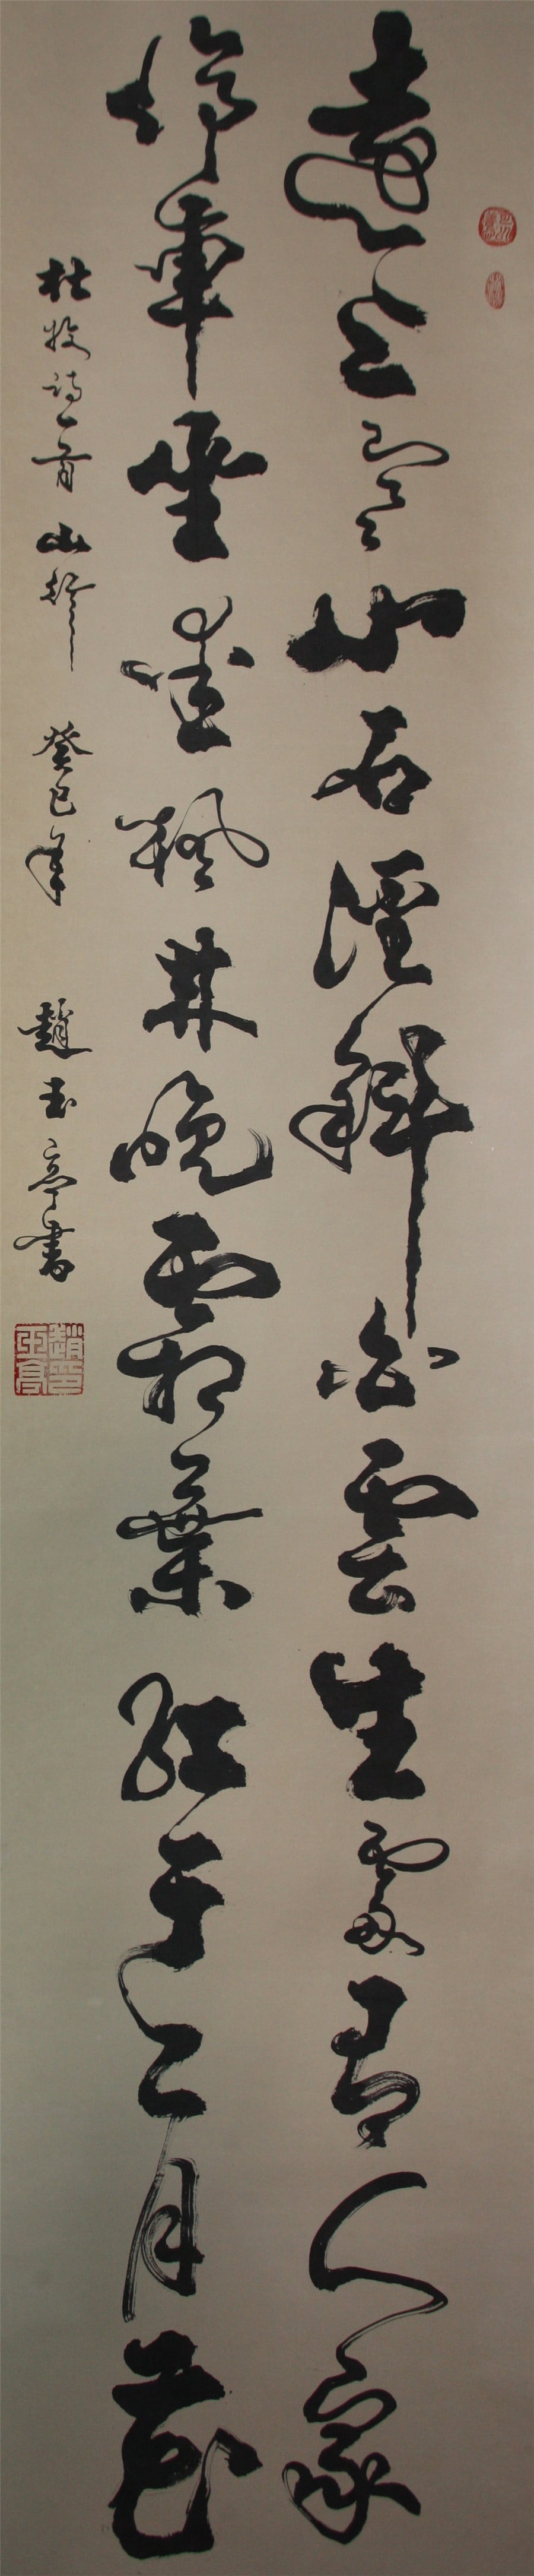 遠上寒山石徑斜白雲生處有人家
停車坐愛楓林晚霜葉紅于二月花
杜牧詩一首 山行 癸巳年 趙玉亭書
趙印玉亭